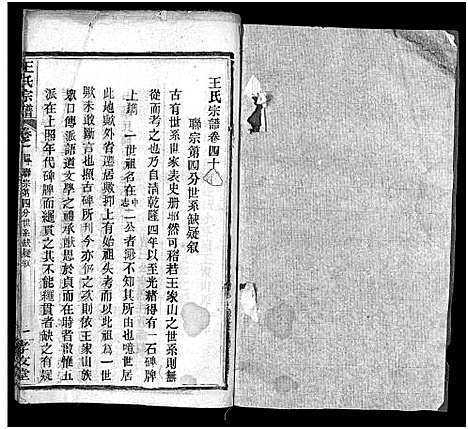 王氏宗譜卷四十
聯宗第四分世系缺疑叙
古有世系世家表史册昭然可稽若王家山之世系則無
從而考之乃自清乾隆四年以至光緒得有一石碑牌
上鐫一世祖名在中志一公者渺不知其所由也噫世居
此地歟外省遷居歟抑上有始祖頭考而以此祖為一世
歟未敢斷言也照古碑所刊今亦仍之歟則依王家山族
眾口傳派語道文學之禮承獻思於貞而在時者啟惟五
派在上照年代碑牌而纙貫之其不能纙貫者缺之有疑
王氏宗譜
卷之四
聯宗第四分世系缺疑叙
一
孝友堂